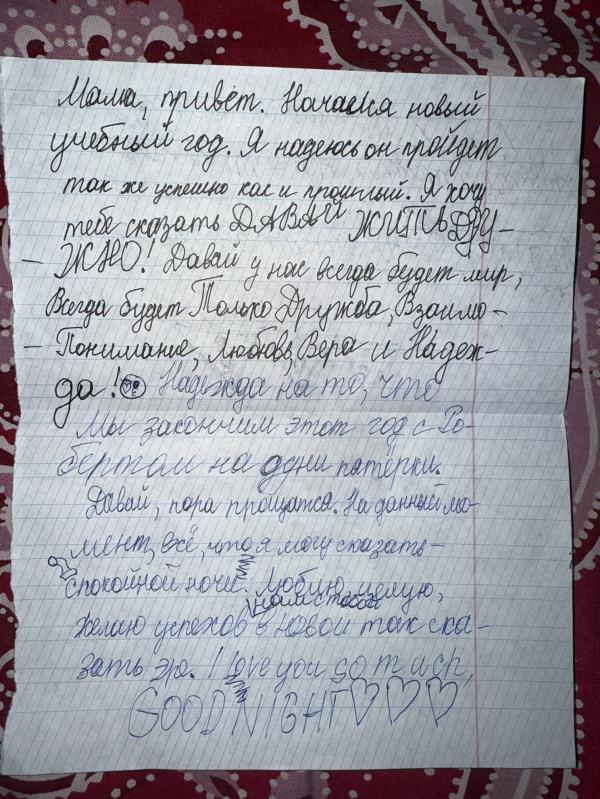 Мама, привет. Начался новый
учебный год. Я надеюсь он пройдет
так же успешно как и прошлый. Я хочу
тебе сказать ДАВАЙ ЖИТЬ ДРУ-
- ЖНО! Давай у нас всегда будет мир,
Всегда будет Только Дружба, Взаимо-
- Понимание, Любовь, Вера и Надеж-
да! Надежда на то, что
Мы закончим этот год с Ро-
бертом на одни пятёрки.
Давай, пора прощатся. На данный мо-
мент, всё, что я могу сказать -
спокойной ночи. Люблю, целую,
нам с тобой
желаю успехов в новой так ска-
зать эре. I Love you so much,
GOOD NIGHT ♡♡♡